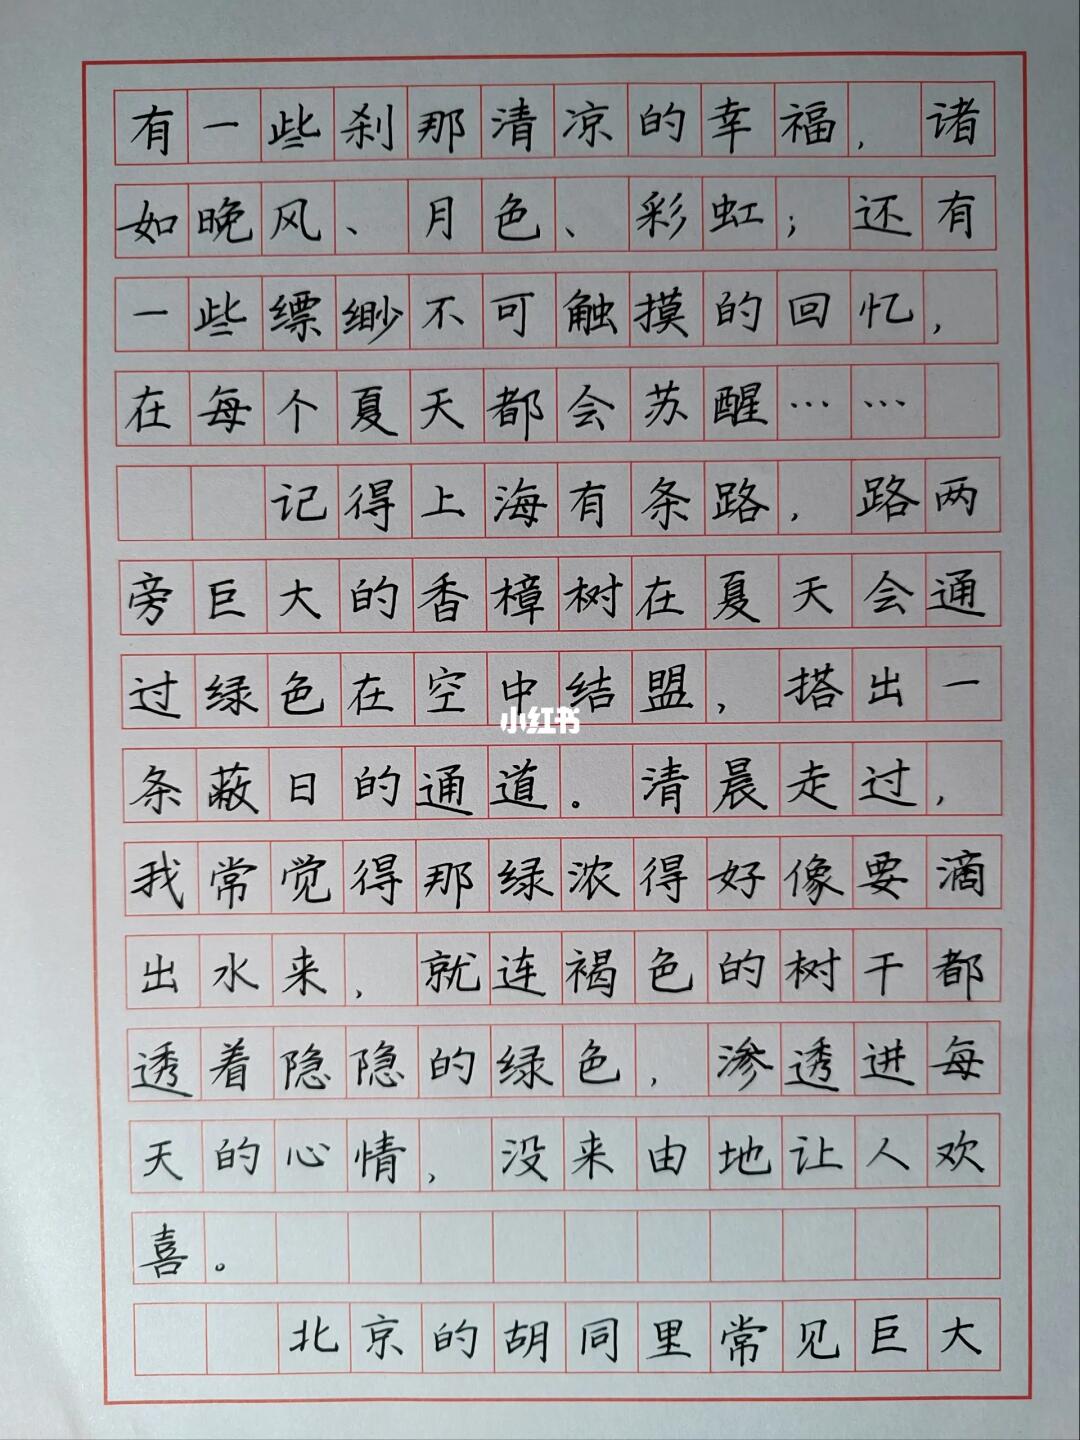 有一些刹那清凉的幸福，诸
如晚风、月色、彩虹；还有
一些缥缈不可触摸的回忆，
在每个夏天都会苏醒……
记得上海有条路，路两
旁巨大的香樟树在夏天会通
过绿色在空中结盟，搭出一
小红书
条蔽日的通道。清晨走过，
我常觉得那绿浓得好像要滴
出水来，就连褐色的树干都
透着隐隐的绿色，渗透进每
天的心情，没来由地让人欢
喜。
北京的胡同里常见巨大